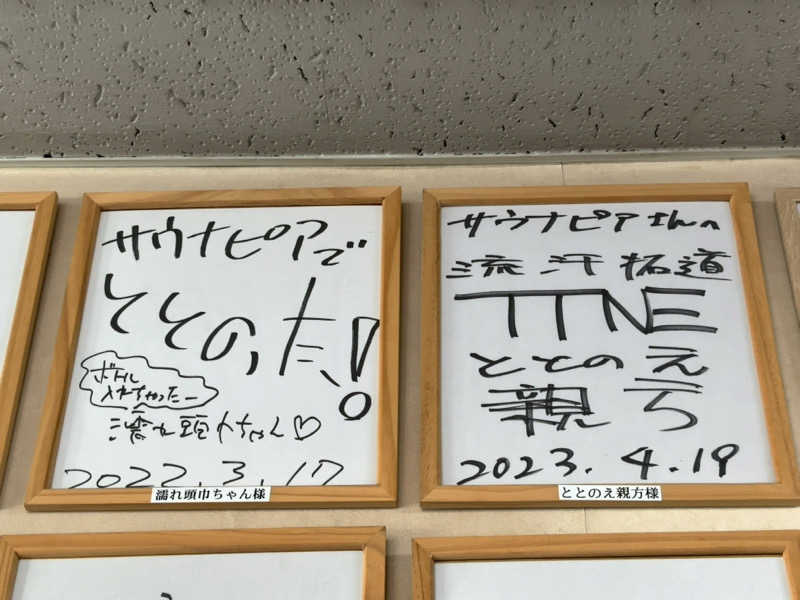 サウナピアで
ととのった!
ボトル
入れちゃったー
濡れ頭巾ちゃん♡
2022.3.17
濡れ頭巾ちゃん様
サウナピアさんへ
流汗拓道
TTNE
ととのえ
親方
2023.4.19
ととのえ親方様